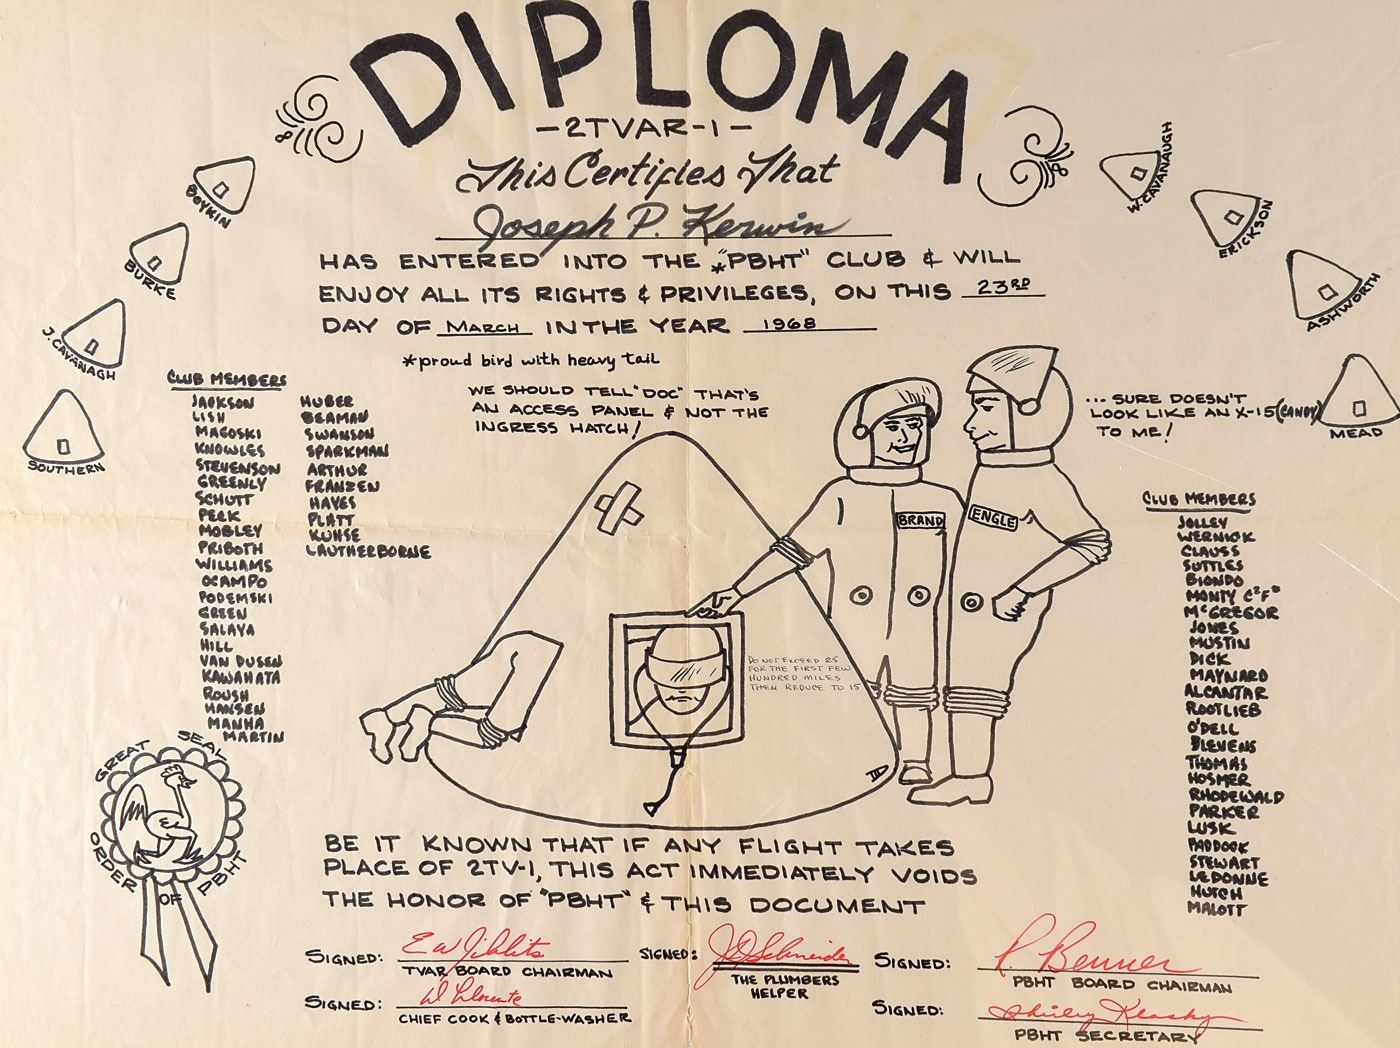 DIPLOMA
-2TVAR-1-
This Certifies That
Joseph P. Kerwin
HAS ENTERED INTO THE *"PBHT" CLUB & WILL
ENJOY ALL ITS RIGHTS & PRIVILEGES, ON THIS 23RD
DAY OF MARCH IN THE YEAR 1968
*proud bird with heavy tail
BOYKIN
BURKE
J. CAVANAGH
SOUTHERN
W. CAVANAUGH
ERICKSON
ASHWORTH
MEAD
CLUB MEMBERS
JACKSON
LISH
MAGOSKI
KNOWLES
STEVENSON
GREENLY
SCHUTT
PERK
MOBLEY
PRIBOTH
WILLIAMS
OCAMPO
PODEMSKI
GREEN
SALAYA
HILL
VAN DUSEN
KAWAHATA
ROUSH
HANSEN
MANHA
MARTIN
HUBER
BEAMAN
SWANSON
SPARKMAN
ARTHUR
FRANZEN
HAYES
PLATT
KUHSE
LAUTHERBORNE
WE SHOULD TELL "DOC" THAT'S
AN ACCESS PANEL & NOT THE
INGRESS HATCH!
... SURE DOESN'T
LOOK LIKE AN X-15 (CANDY)
TO ME!
BRAND
ENGLE
DO NOT EXCEED 25
FOR THE FIRST FEW
HUNDRED MILES
THEN REDUCE TO 15
CLUB MEMBERS
JOLLEY
WERNICK
CLAUSS
SUTTLES
BIONDO
MONTY C²F²
McGREGOR
JONES
MUSTIN
DICK
MAYNARD
ALCANTAR
ROOTLIEB
O'DELL
BLEVENS
THOMAS
HOSMER
RHODEWALD
PARKER
LUSK
PADDOCK
STEWART
LEDONNE
HUTCH
MALOTT
GREAT SEAL
ORDER OF PBHT
BE IT KNOWN THAT IF ANY FLIGHT TAKES
PLACE OF 2TV-1, THIS ACT IMMEDIATELY VOIDS
THE HONOR OF "PBHT" & THIS DOCUMENT
SIGNED:
TVAR BOARD CHAIRMAN
SIGNED:
CHIEF COOK & BOTTLE-WASHER
SIGNED: J O Schneider
THE PLUMBERS
HELPER
SIGNED: P. Benner
PBHT BOARD CHAIRMAN
SIGNED: Shirley
PBHT SECRETARY